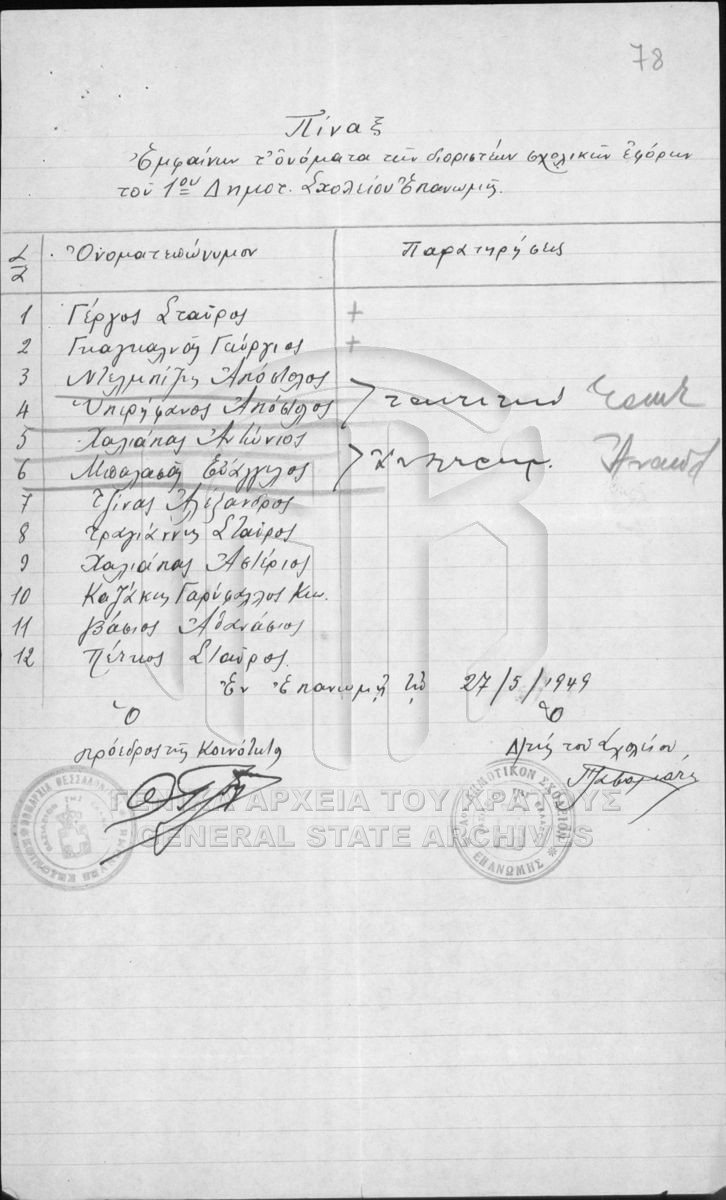 78
Πίναξ
Ἐμφαίνων τ' ὀνόματα τῶν διοριστέων σχολικῶν ἐφόρων
τοῦ 1ου Δημοτ. Σχολείου Ἐπανωμῆς.
Α/Α Ὀνοματεπώνυμον Παρατηρήσεις
1 Γέργος Σταῦρος +
2 Γεώργιος +
3 Ἀπόστολος
4 Ὑπερήφανος Ἀπόστολος
5 Χαλιάπας Ἀντώνιος
6 Μπαλασᾶς Εὐάγγελος
7 Τζίνας Ἀλέξανδρος
8 Τραγιάννης Σταῦρος
9 Χαλιάπας Ἀστέριος
10 Καζάκης Γαρύφαλλος Κων.
11 Βάσιος Ἀθανάσιος
12 Πέτκος Σταῦρος.
Ἐν Ἐπανωμῇ τῇ 27/5/1949
Ὁ Ὁ
Πρόεδρος τῆς Κοινότητος Δ/τής τοῦ Σχολείου
ΓΕΝΙΚΑ ΑΡΧΕΙΑ ΤΟΥ ΚΡΑΤΟΥΣ
GENERAL STATE ARCHIVES
ΔΗΜΟΤΙΚΟΝ ΣΧΟΛΕΙΟΝ
ΕΠΑΝΩΜΗΣ